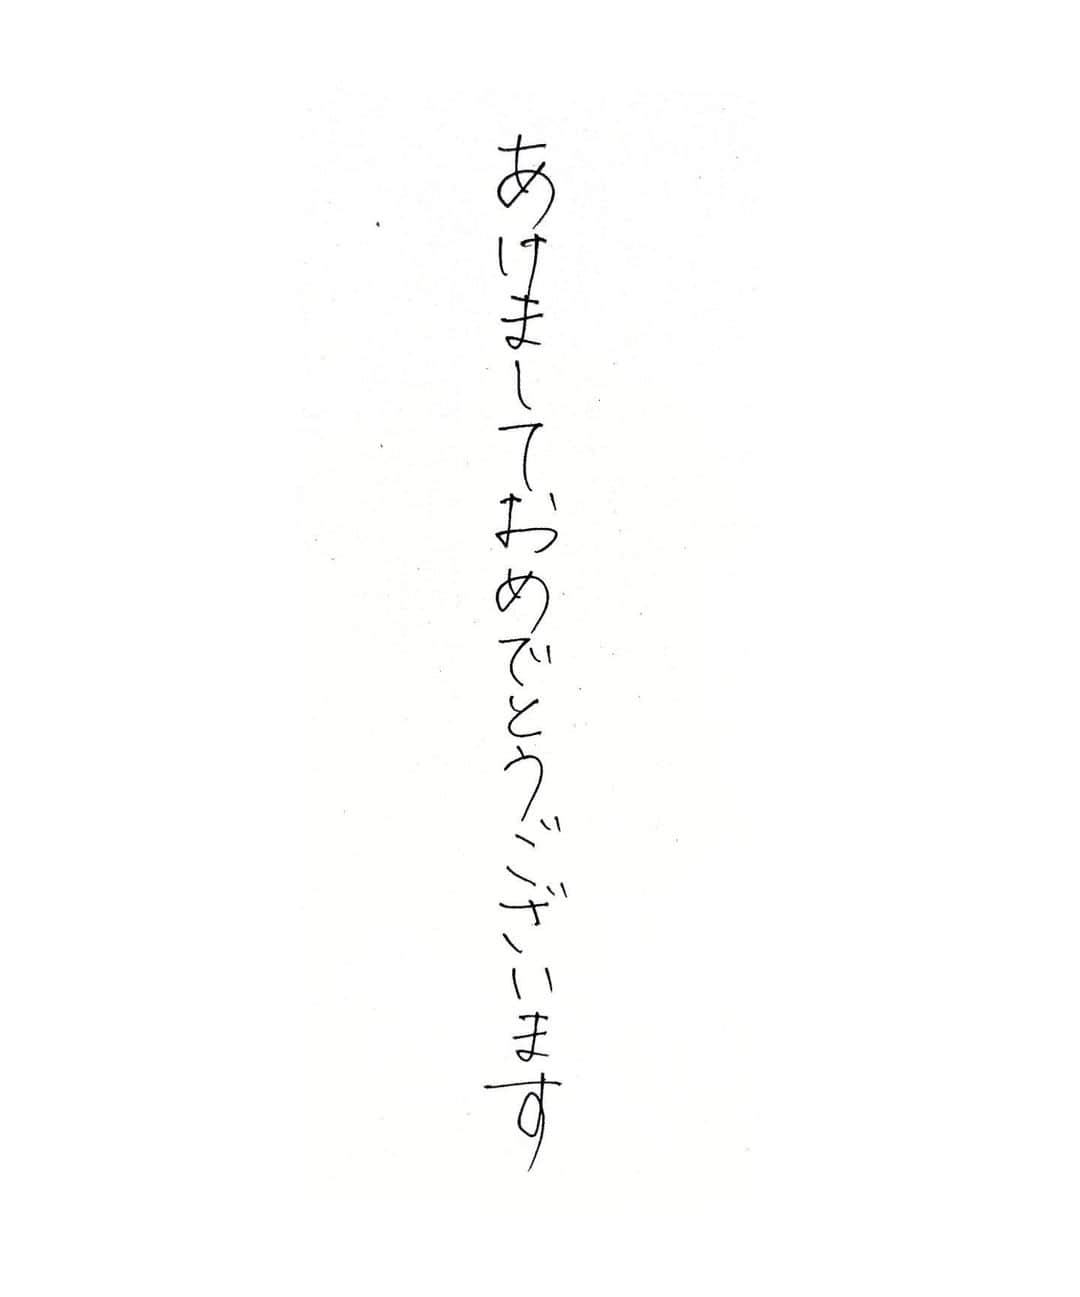 あけましておめでとうございます